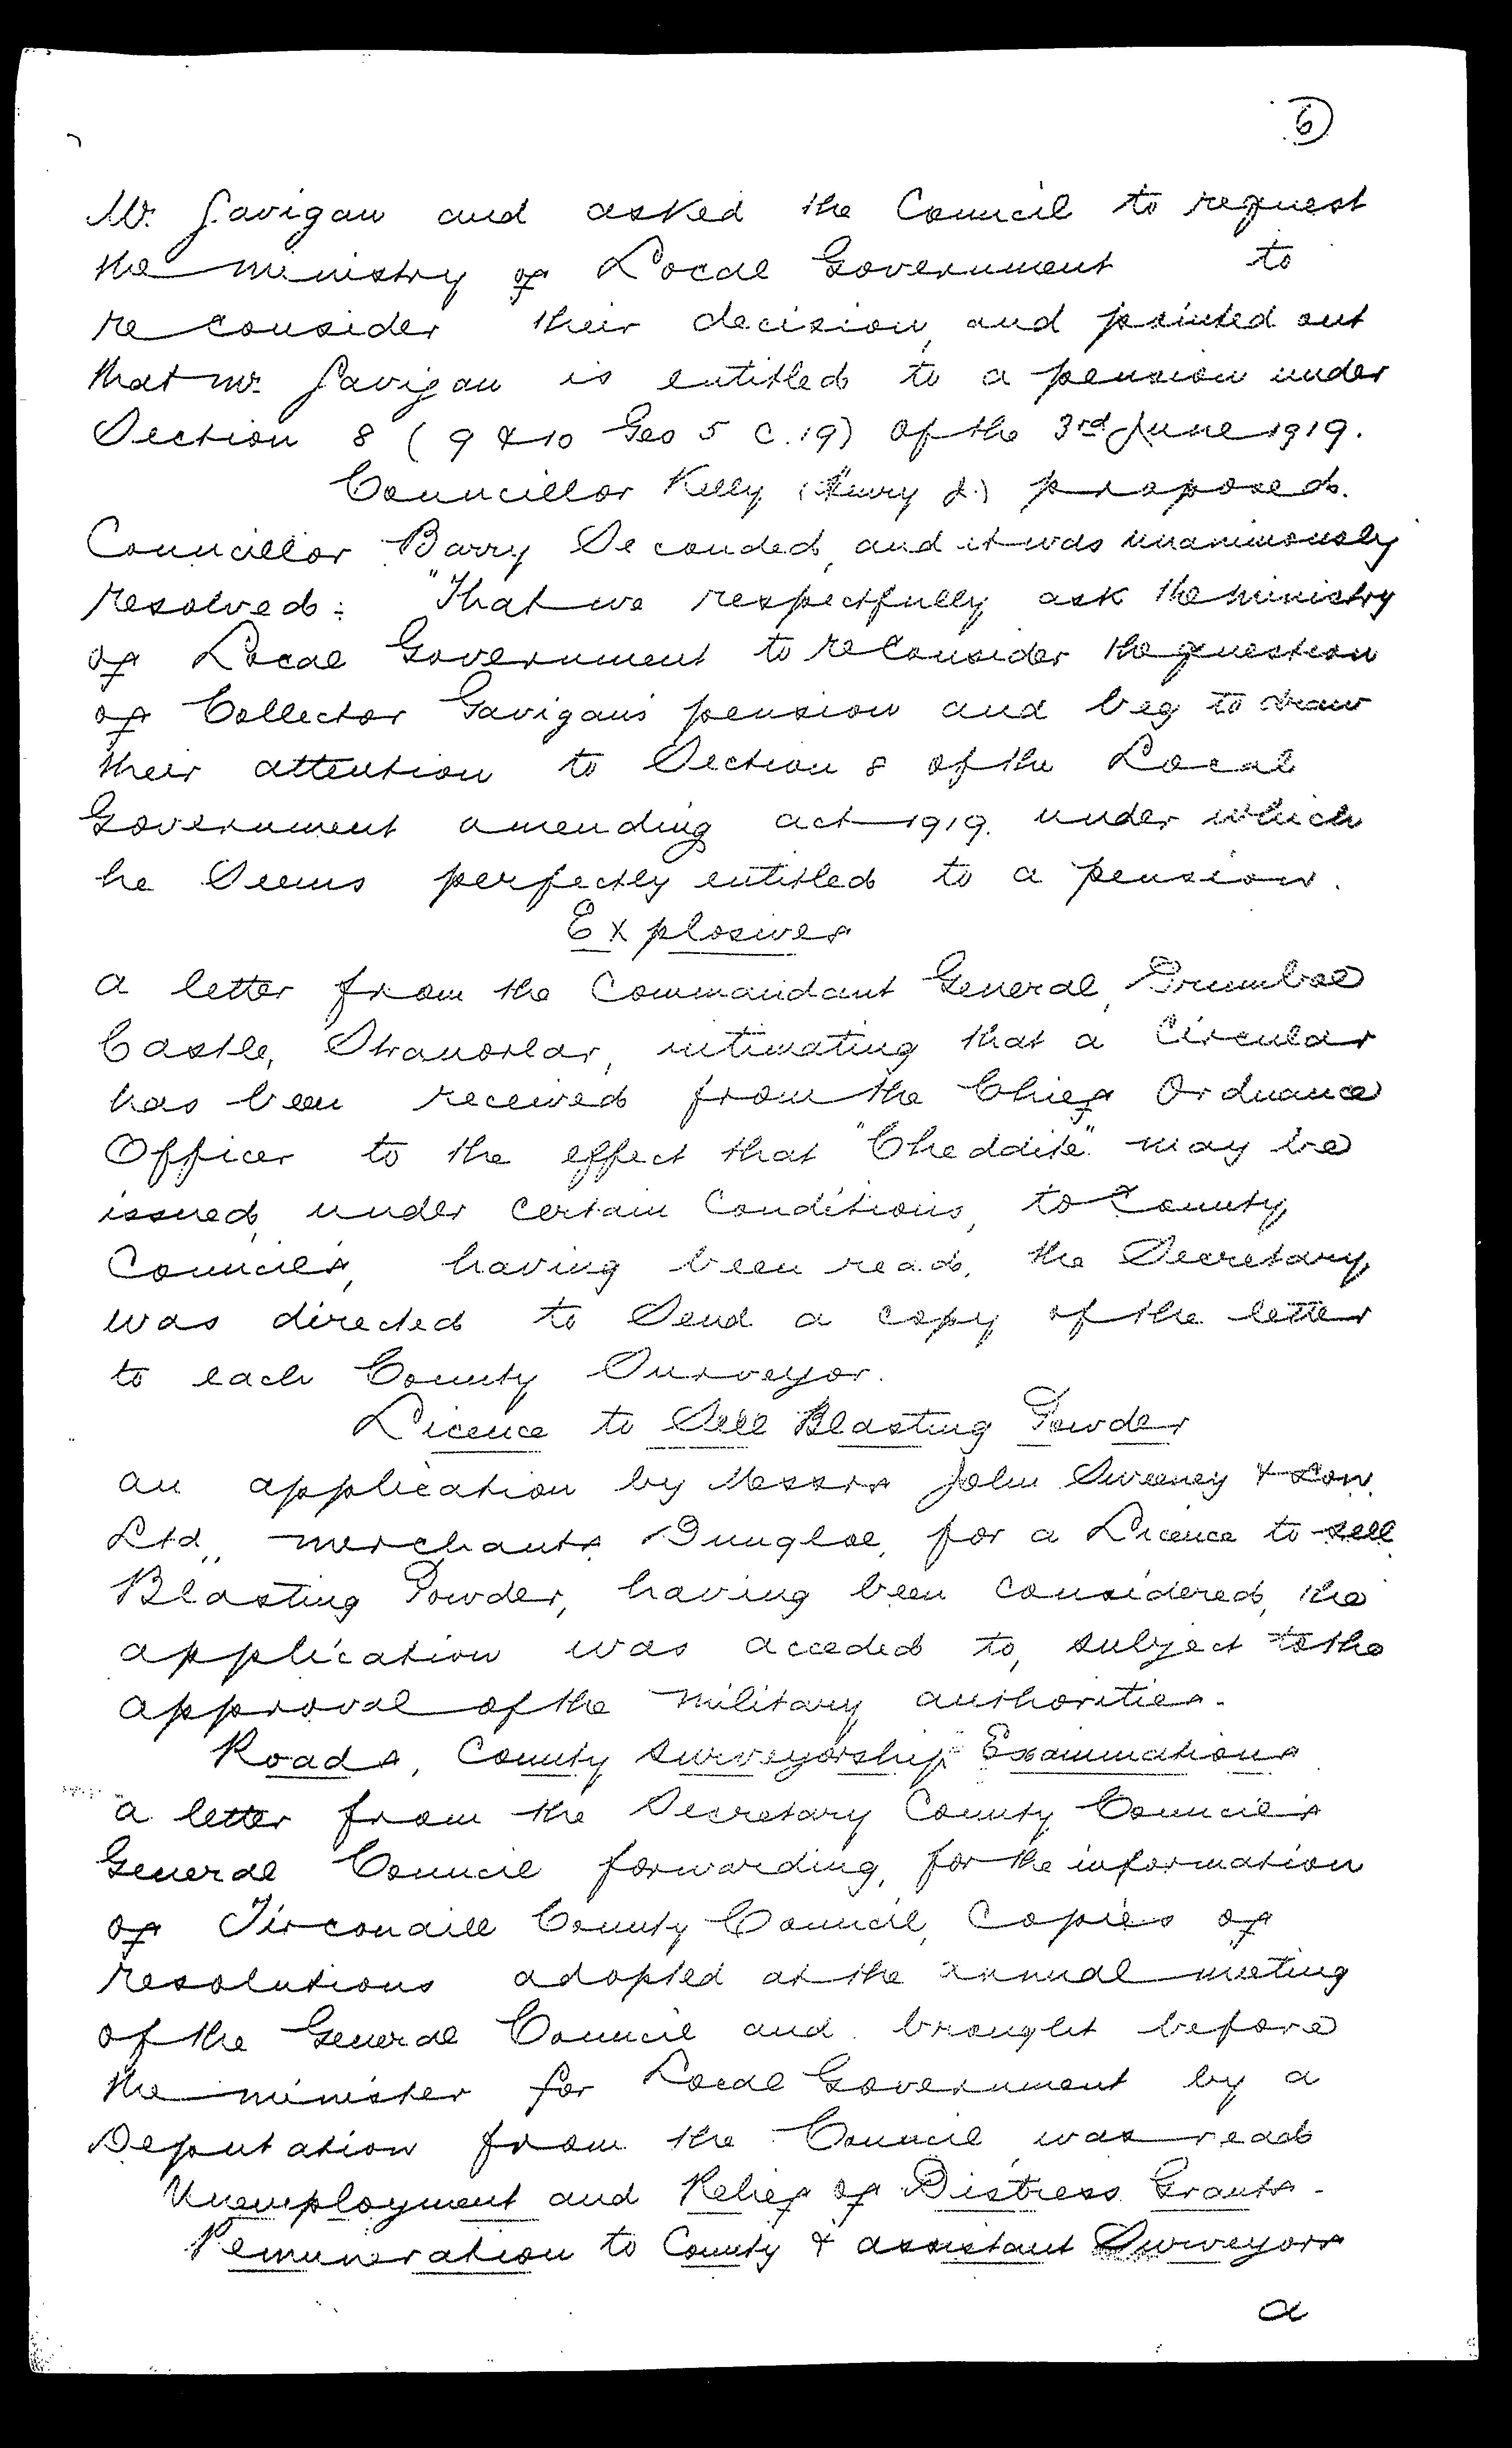 6
Mr. Gavigan and asked the Council to request
the ministry of Local Government to
reconsider their decision, and pointed out
that Mr. Gavigan is entitled to a pension under
Section 8 (9 & 10 Geo 5 C. 19) of the 3rd June 1919.
Councillor Kelly (Henry J.) proposed.
Councillor Barry Seconded, and it was unanimously
resolved: "That we respectfully ask the ministry
of Local Government to reconsider the question
of Collector Gavigan's pension and beg to draw
their attention to Section 8 of the Local
Government amending act 1919. under which
he Seems perfectly entitled to a pension.
Explosives
a letter from the Commandant General, Drumboe
Castle, Stranorlar, intimating that a Circular
has been received from the Chief Ordnance
Officer to the effect that "Cheddite" may be
issued, under certain Conditions, to County
Councils, having been read, the Secretary
was directed to Send a copy of the letter
to each County Surveyor.
Licence to Sell Blasting Powder
an application by Messrs John Sweeney & Son
Ltd., merchants, Dungloe, for a Licence to sell
Blasting Powder, having been considered, the
application was acceded to, subject to the
approval of the military authorities.
Roads, County Surveyorship Examinations
a letter from the Secretary County Councils
General Council forwarding, for the information
of Tirconaill County Council, Copies of
resolutions adopted at the annual meeting
of the General Council and brought before
the minister for Local Government by a
Deputation from the Council, was read
Unemployment and Relief of Distress Grants -
Remuneration to County & assistant Surveyors
a